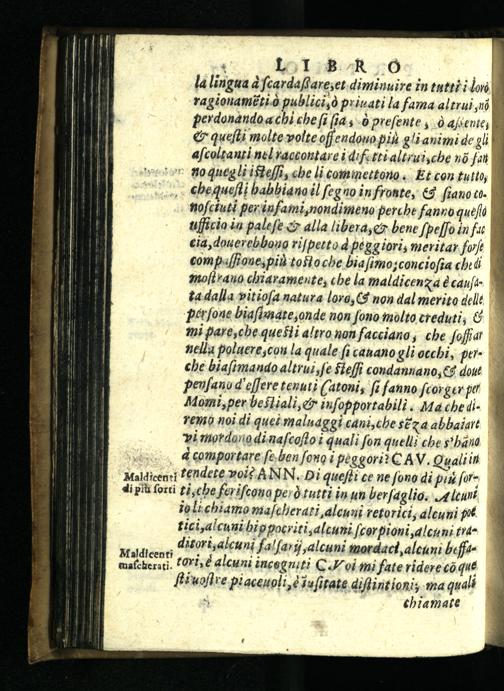 LIBRO
la lingua à scardaßare, et diminuire in tutti i loro
ragionamēti ò publici, ò priuati la fama altrui, nō
perdonando a chi che si sia, ò presente, ò assente,
& questi molte volte offendono più gli animi de gli
ascoltanti nel raccontare i difetti altrui, che nō fan
no quegli istessi, che li commettono. Et con tutto,
che questi habbiano il segno in fronte, & siano co-
nosciuti per infami, nondimeno perche fanno questo
ufficio in palese & alla libera, & bene spesso in fac
cia, douerebbono rispetto à peggiori, meritar forse
compassione, più tosto che biasimo; conciosia che di
mostrano chiaramente, che la maldicenza è causa-
ta dalla vitiosa natura loro, & non dal merito delle
persone biasimate, onde non sono molto creduti, &
mi pare, che questi altro non facciano, che soffiar
nella poluere, con la quale si cauano gli occhi, per-
che biasimando altrui, se stessi condannano, & doue
pensano d'essere tenuti Catoni, si fanno scorger per
Momi, per bestiali, & insopportabili. Ma che di-
remo noi di quei maluaggi cani, che sēza abbaiare
vi mordono di nascosto i quali son quelli che s'hāno
à comportare se ben sono i peggori? CAV. Quali in
tendete voi? ANN. Di questi ce ne sono di più sor-
ti, che feriscono però tutti in un bersaglio. Alcuni
io li chiamo mascherati, alcuni retorici, alcuni poe
tici, alcuni hippocriti, alcuni scorpioni, alcuni tra-
ditori, alcuni falsarij, alcuni mordaci, alcuni beffa-
tori, è alcuni incogniti C. Voi mi fate ridere cō que
sti uostre piaceuoli, è īusitate distintioni; ma quali
chiamate
Maldicenti
di più sorti
Maldicenti
mascherati.